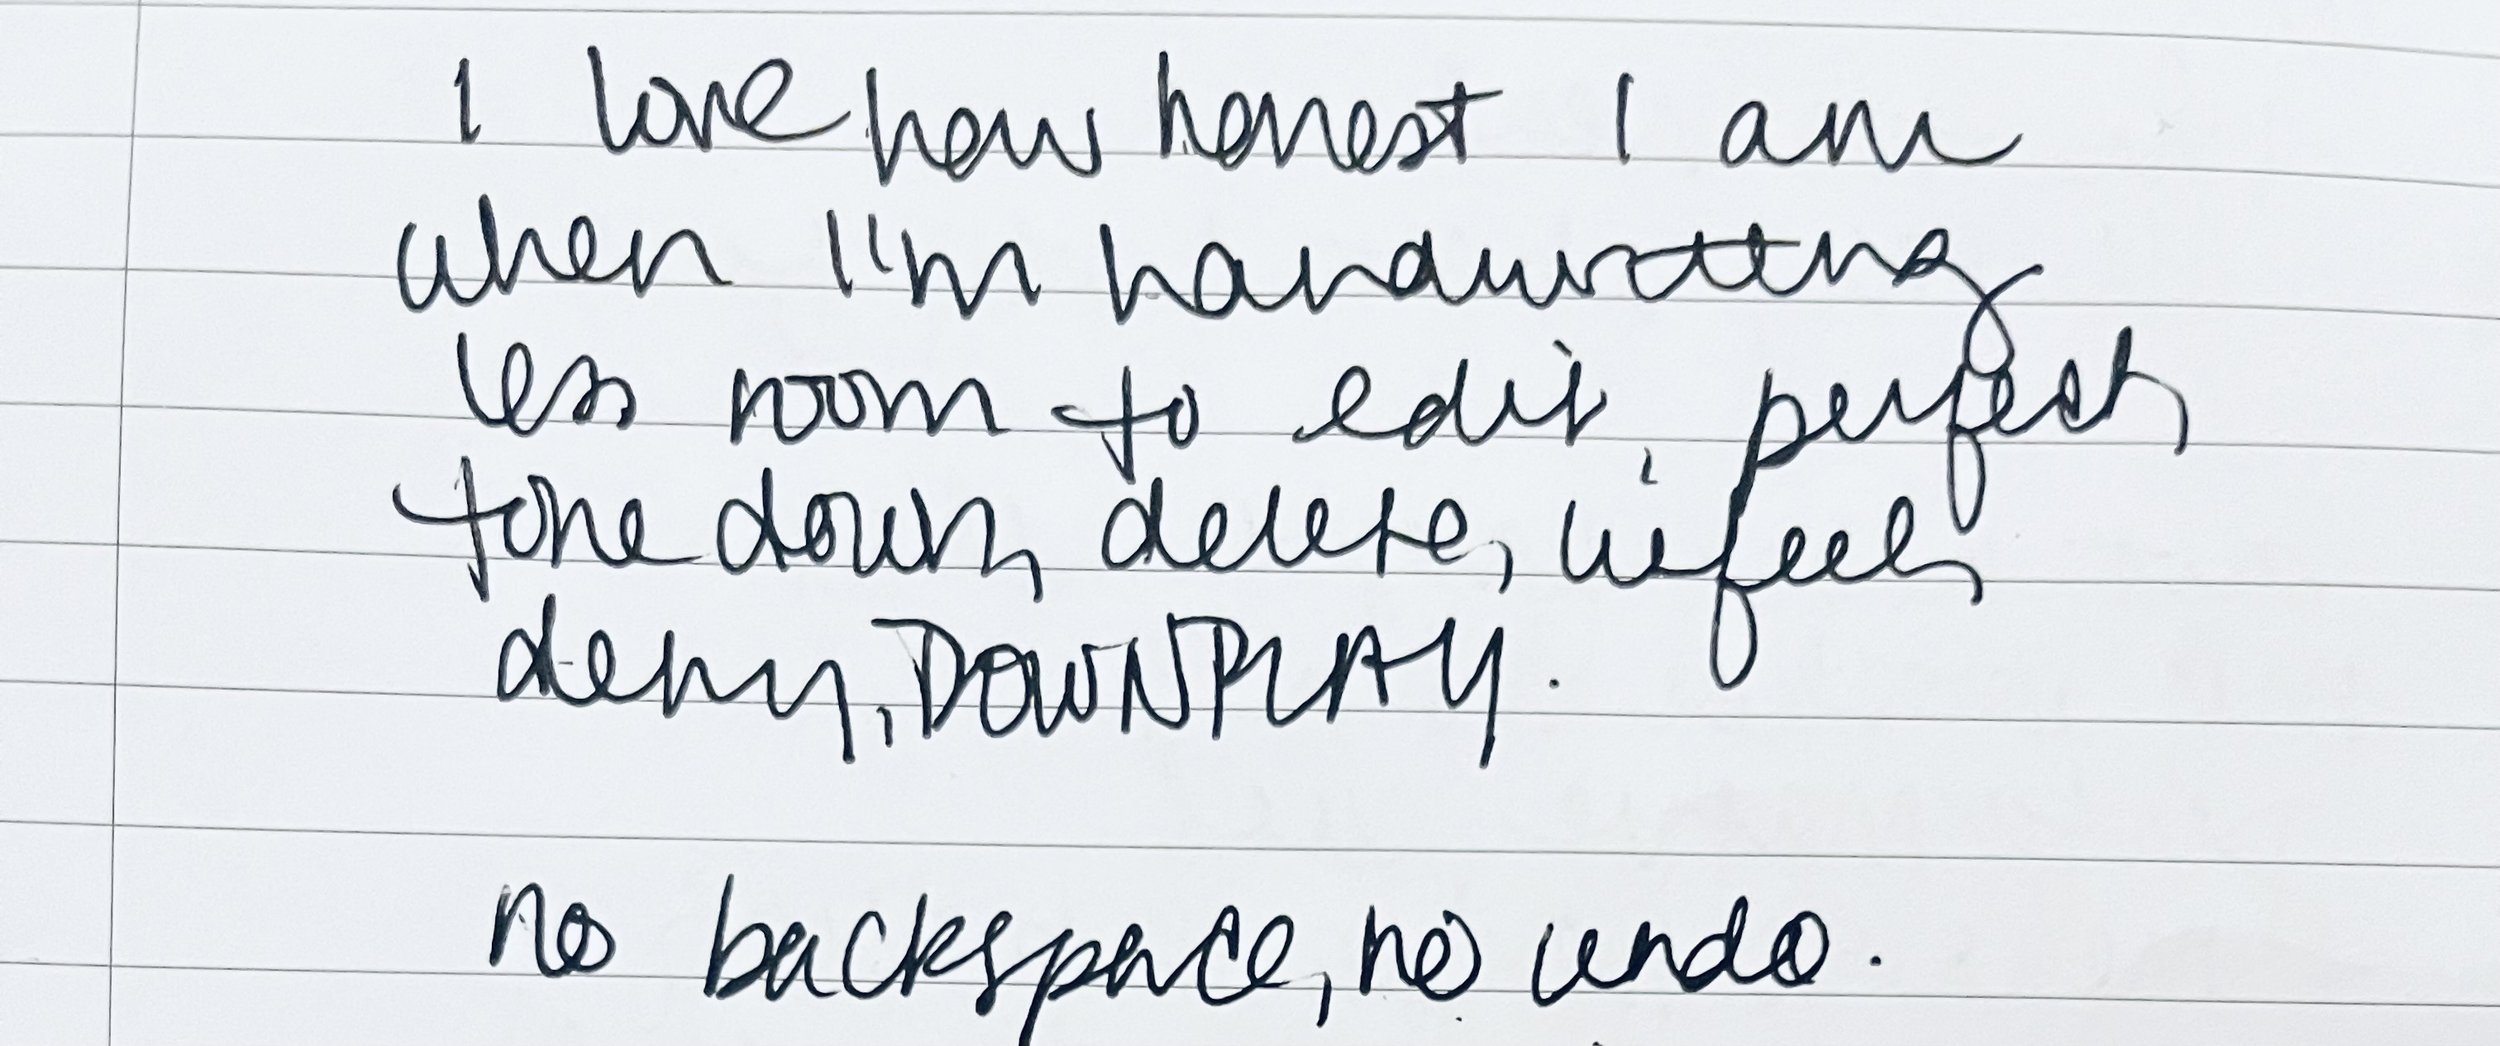 I love how honest I am
when I'm handwriting
less room to edit, perfect,
tone down, delete,
deny, DOWNPLAY.
no backspace, no undo.